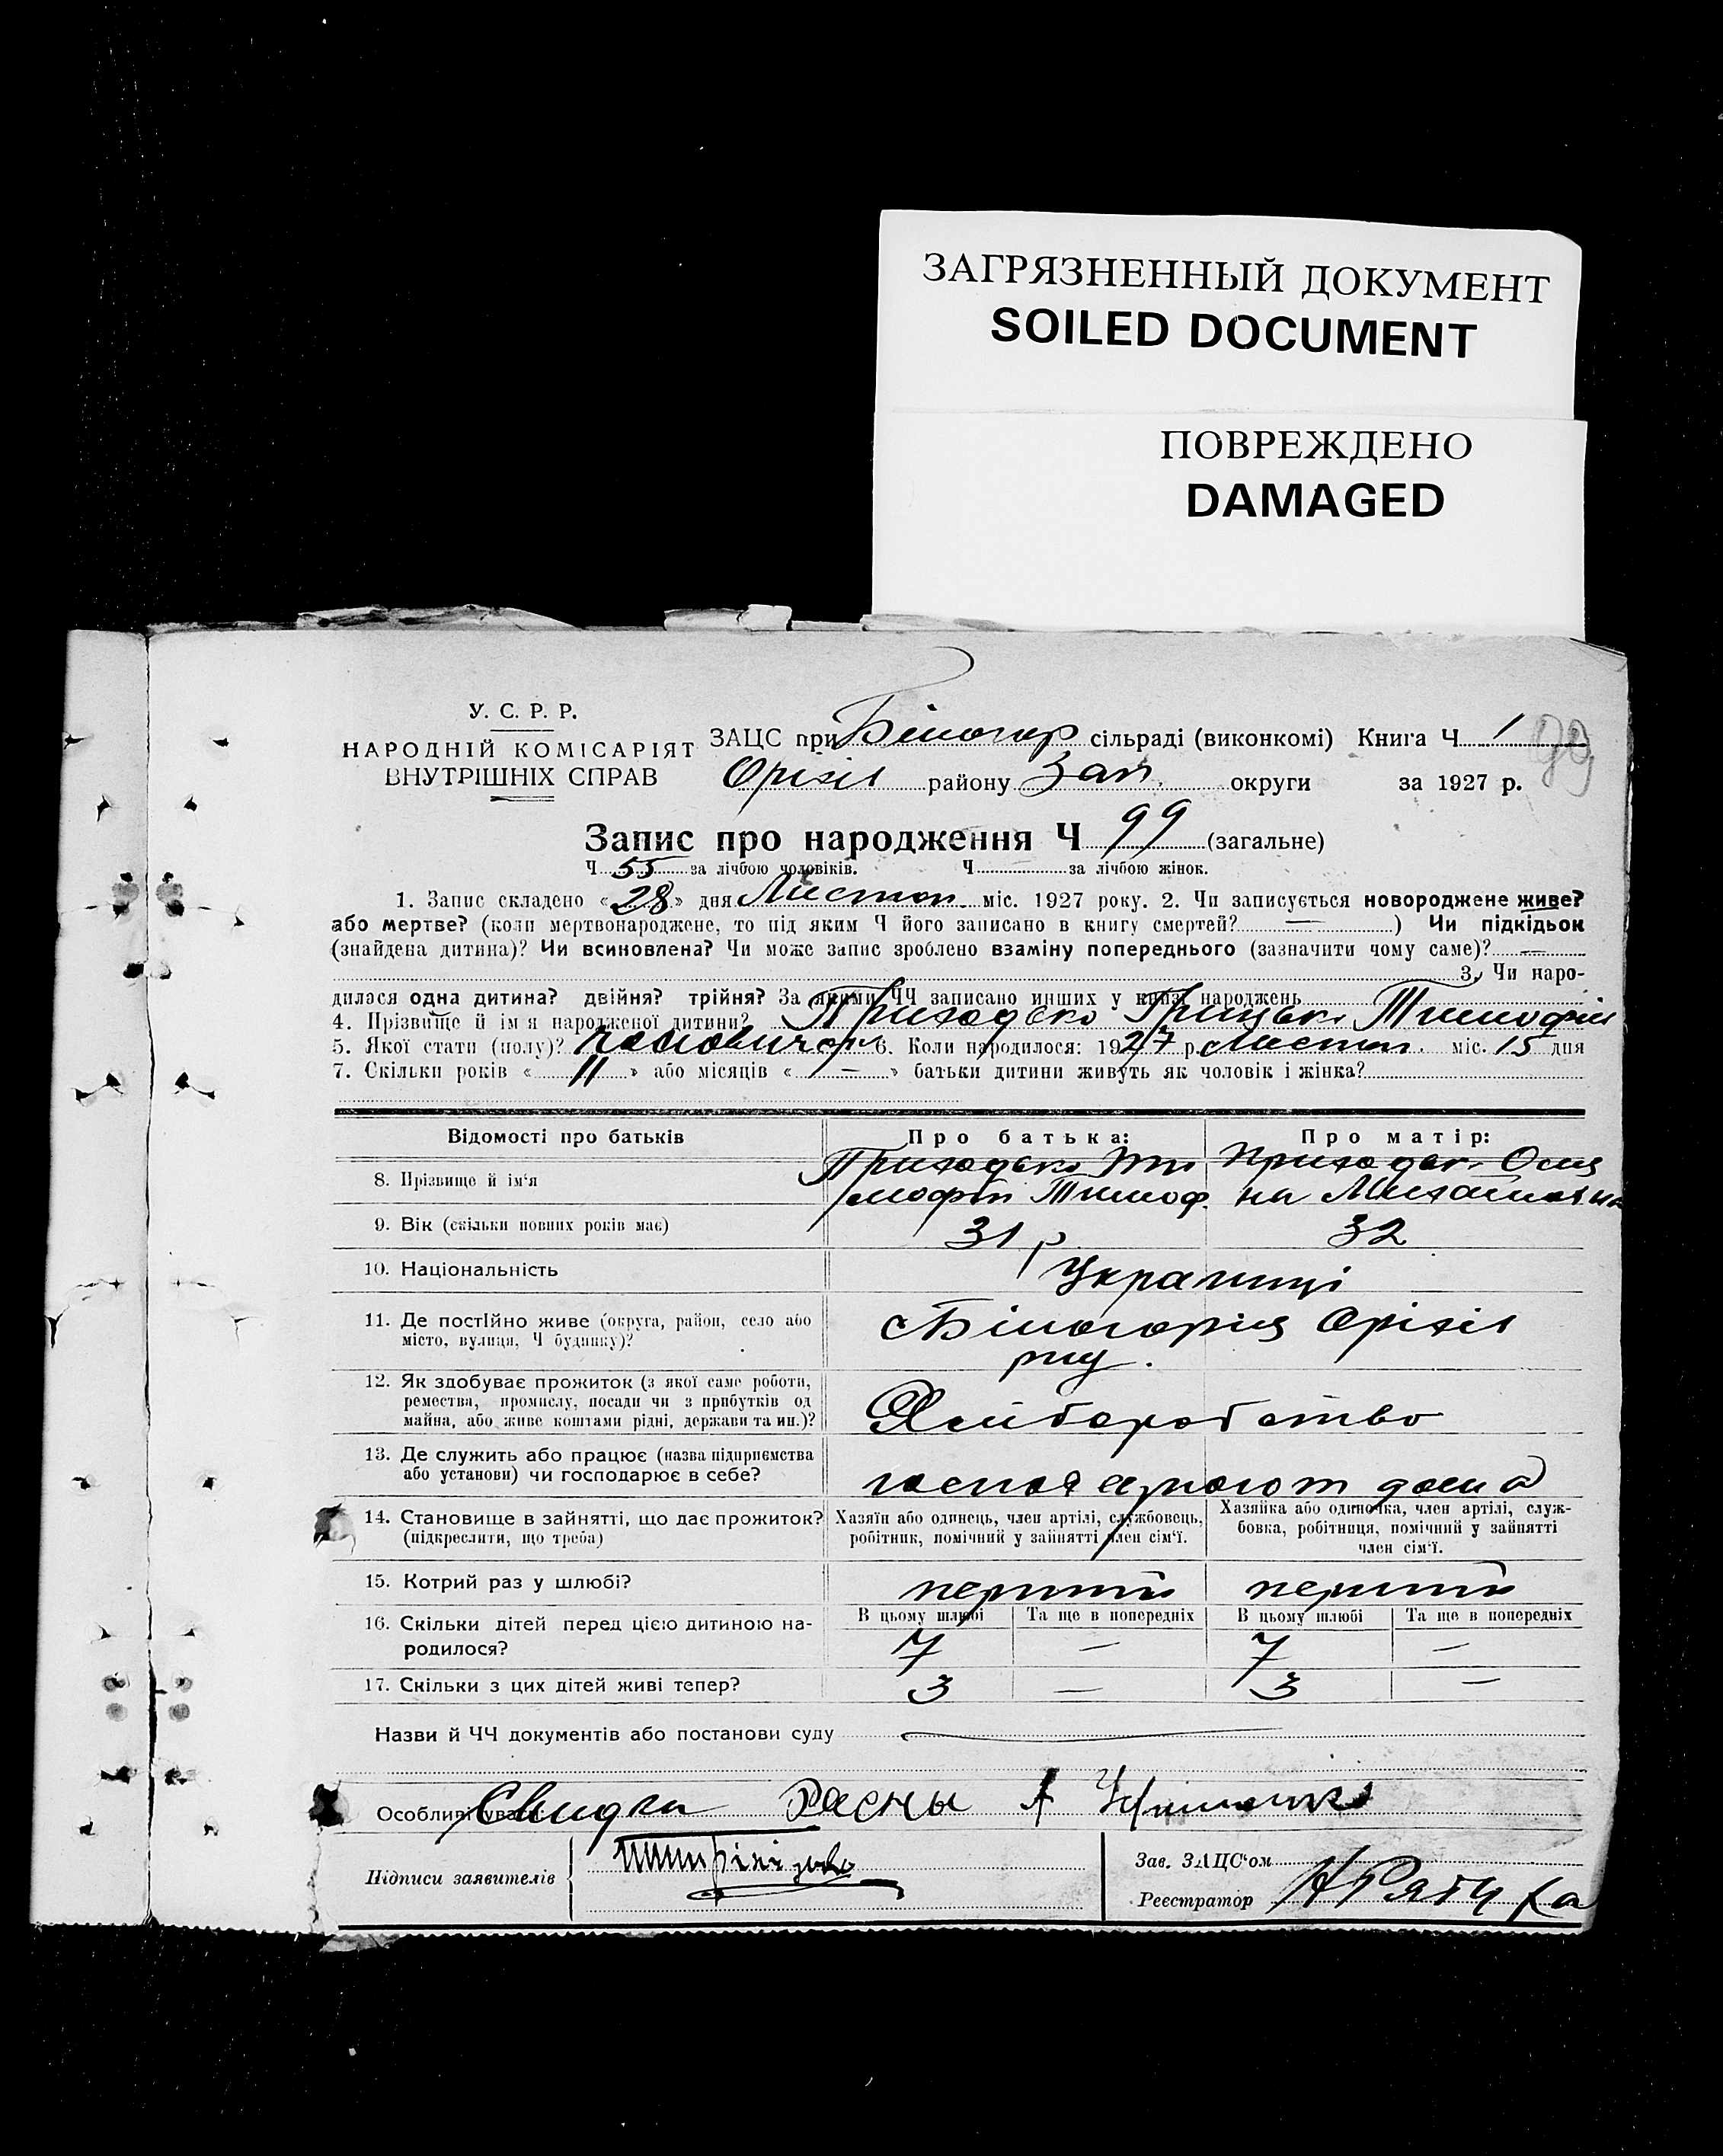 ЗАГРЯЗНЕННЫЙ ДОКУМЕНТ
SOILED DOCUMENT
ПОВРЕЖДЕНО
DAMAGED
У. С. Р. Р.
НАРОДНІЙ КОМІСАРІЯТ
ВНУТРІШНІХ СПРАВ
ЗАЦС при Білогор сільраді (виконкомі) Книга Ч 1
Оріхів району Зап. округи за 1927 р.
Запис про народження Ч 99 (загальне)
Ч 55 за лічбою чоловіків. Ч за лічбою жінок.
1. Запис складено « 28 » дня Листоп. міс. 1927 року. 2. Чи записується новороджене живе?
або мертве? (коли мертвонароджене, то під яким Ч його записано в книгу смертей? — ) Чи підкідьок
(знайдена дитина)? Чи всиновлена? Чи може запис зроблено взаміну попереднього (зазначити чому саме)? —
3. Чи наро-
дилася одна дитина? двійня? трійня? За якими ЧЧ записано инших у книзі народжень
4. Прізвище й ім'я народженої дитини? Приходько Грицько Тимофій
5. Якої стати (полу)? чоловичар 6. Коли народилося: 1927 р. Листоп. міс. 15 дня
7. Скільки років « 11 » або місяців « — » батьки дитини живуть як чоловік і жінка?
Відомості про батьків
Про батька:
Про матір:
8. Прізвище й ім'я
Приходько Ти
мофій Тимоф.
Приходьк. Оля
на Михайловна
9. Вік (скільки повних років має)
31 р
32
10. Національність
Українці
11. Де постійно живе (округа, район, село або
місто, вулиця, Ч будинку)?
с Білогорія Оріхів
рну.
12. Як здобуває прожиток (з якої саме роботи,
ремества, промислу, посади чи з прибутків од
майна, або живе коштами рідні, держави та ин.)?
Хліборобство
13. Де служить або працює (назва підприємства
або установи) чи господарює в себе?
господарюют дома
14. Становище в зайнятті, що дає прожиток?
(підкреслити, що треба)
Хазяїн або одинець, член артілі, службовець,
робітник, помічний у зайнятті член сім'ї.
Хазяйка або одиночка, член артілі, служ-
бовка, робітниця, помічний у зайнятті
член сім'ї.
15. Котрий раз у шлюбі?
перший
перший
16. Скільки дітей перед цією дитиною на-
родилося?
В цьому шлюбі
Та ще в попередніх
В цьому шлюбі
Та ще в попередніх
7 — 7 —
17. Скільки з цих дітей живі тепер?
3 — 3 —
Назви й ЧЧ документів або постанови суду
Особливі уваги:
Підписи заявителів
Зав. ЗАЦС'ом
Реєстратор